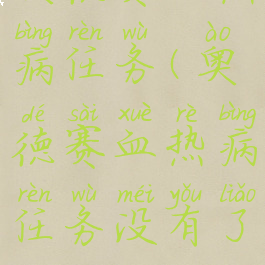 bìng rèn wù ào
病任务(奥
dé sài xuè rè bìng
德赛血热病
rèn wù méi yǒu liǎo
任务没有了